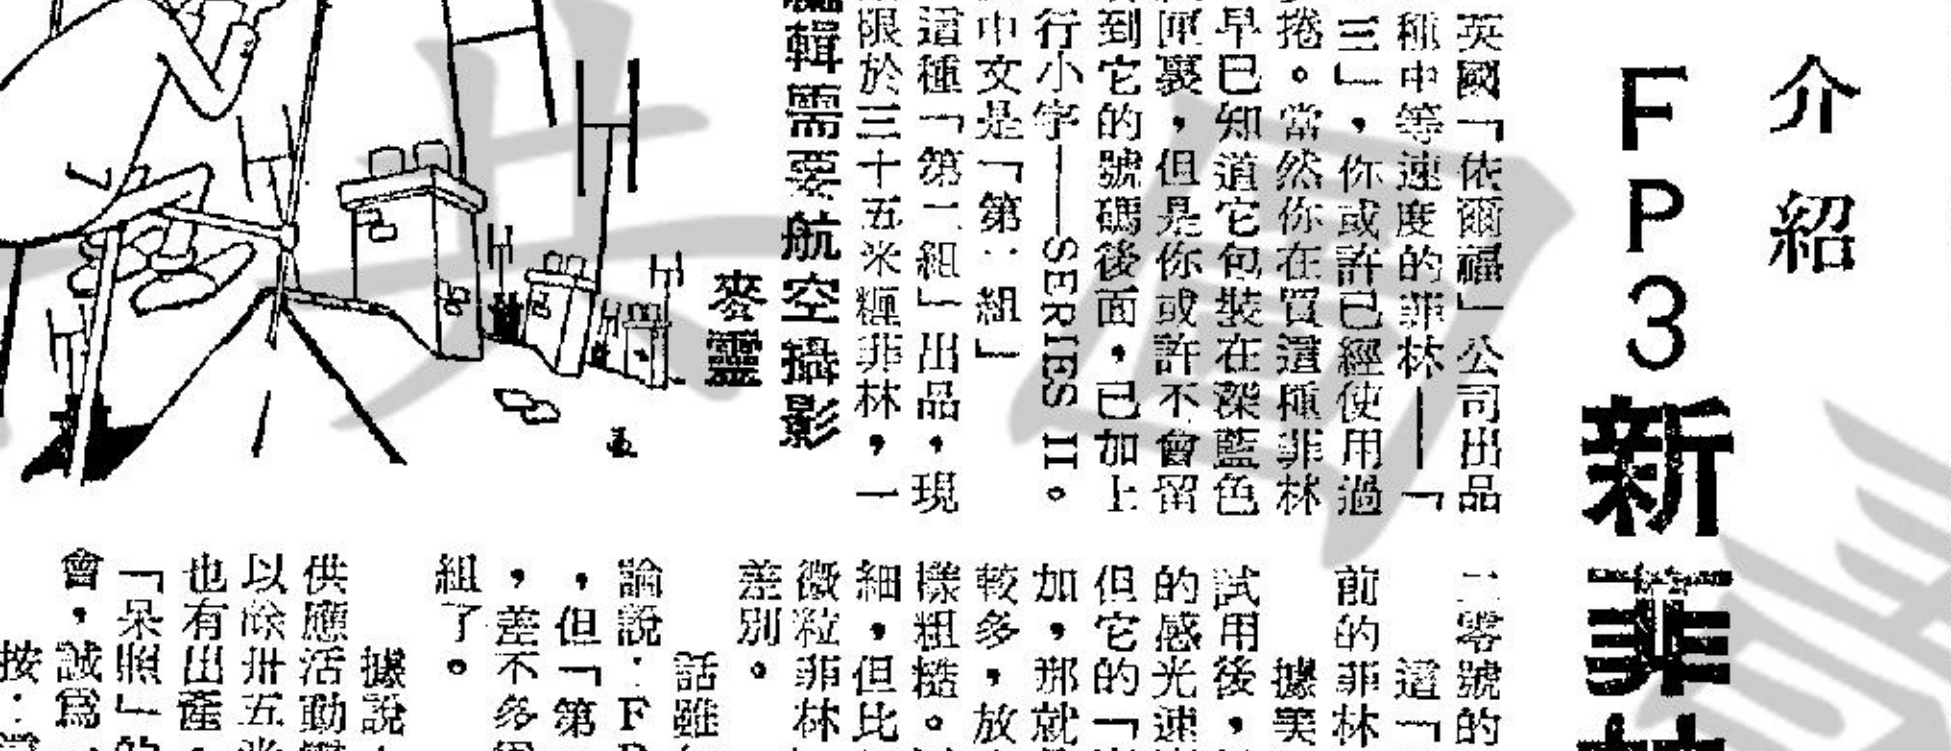 介紹
FP3新菲林
英國「依爾福」公司出品
種中等速度的菲林——「
三」，你或許已經使用過
捲。當然你在買這種菲林
早已知道它包裝在深藍色
匣裏，但是你或許不會留
到它的號碼後面，已加上
行小字——SERIES II。
中文是「第二組」
這種「第二組」出品，現
限於三十五米糎菲林，一
編輯需要航空攝影
麥靈
二零號的
這「
前的菲林
據美
試用後，
的感光速
但它的「
加，那就
較多，放
樣粗糙。
細，但比
微粒菲林
差別。
話雖
論說：F
，但「第
，差不多
組了。
據說，
供應活動
以除卅五米
也有出產。
「呆照」的
會，誠爲
按：